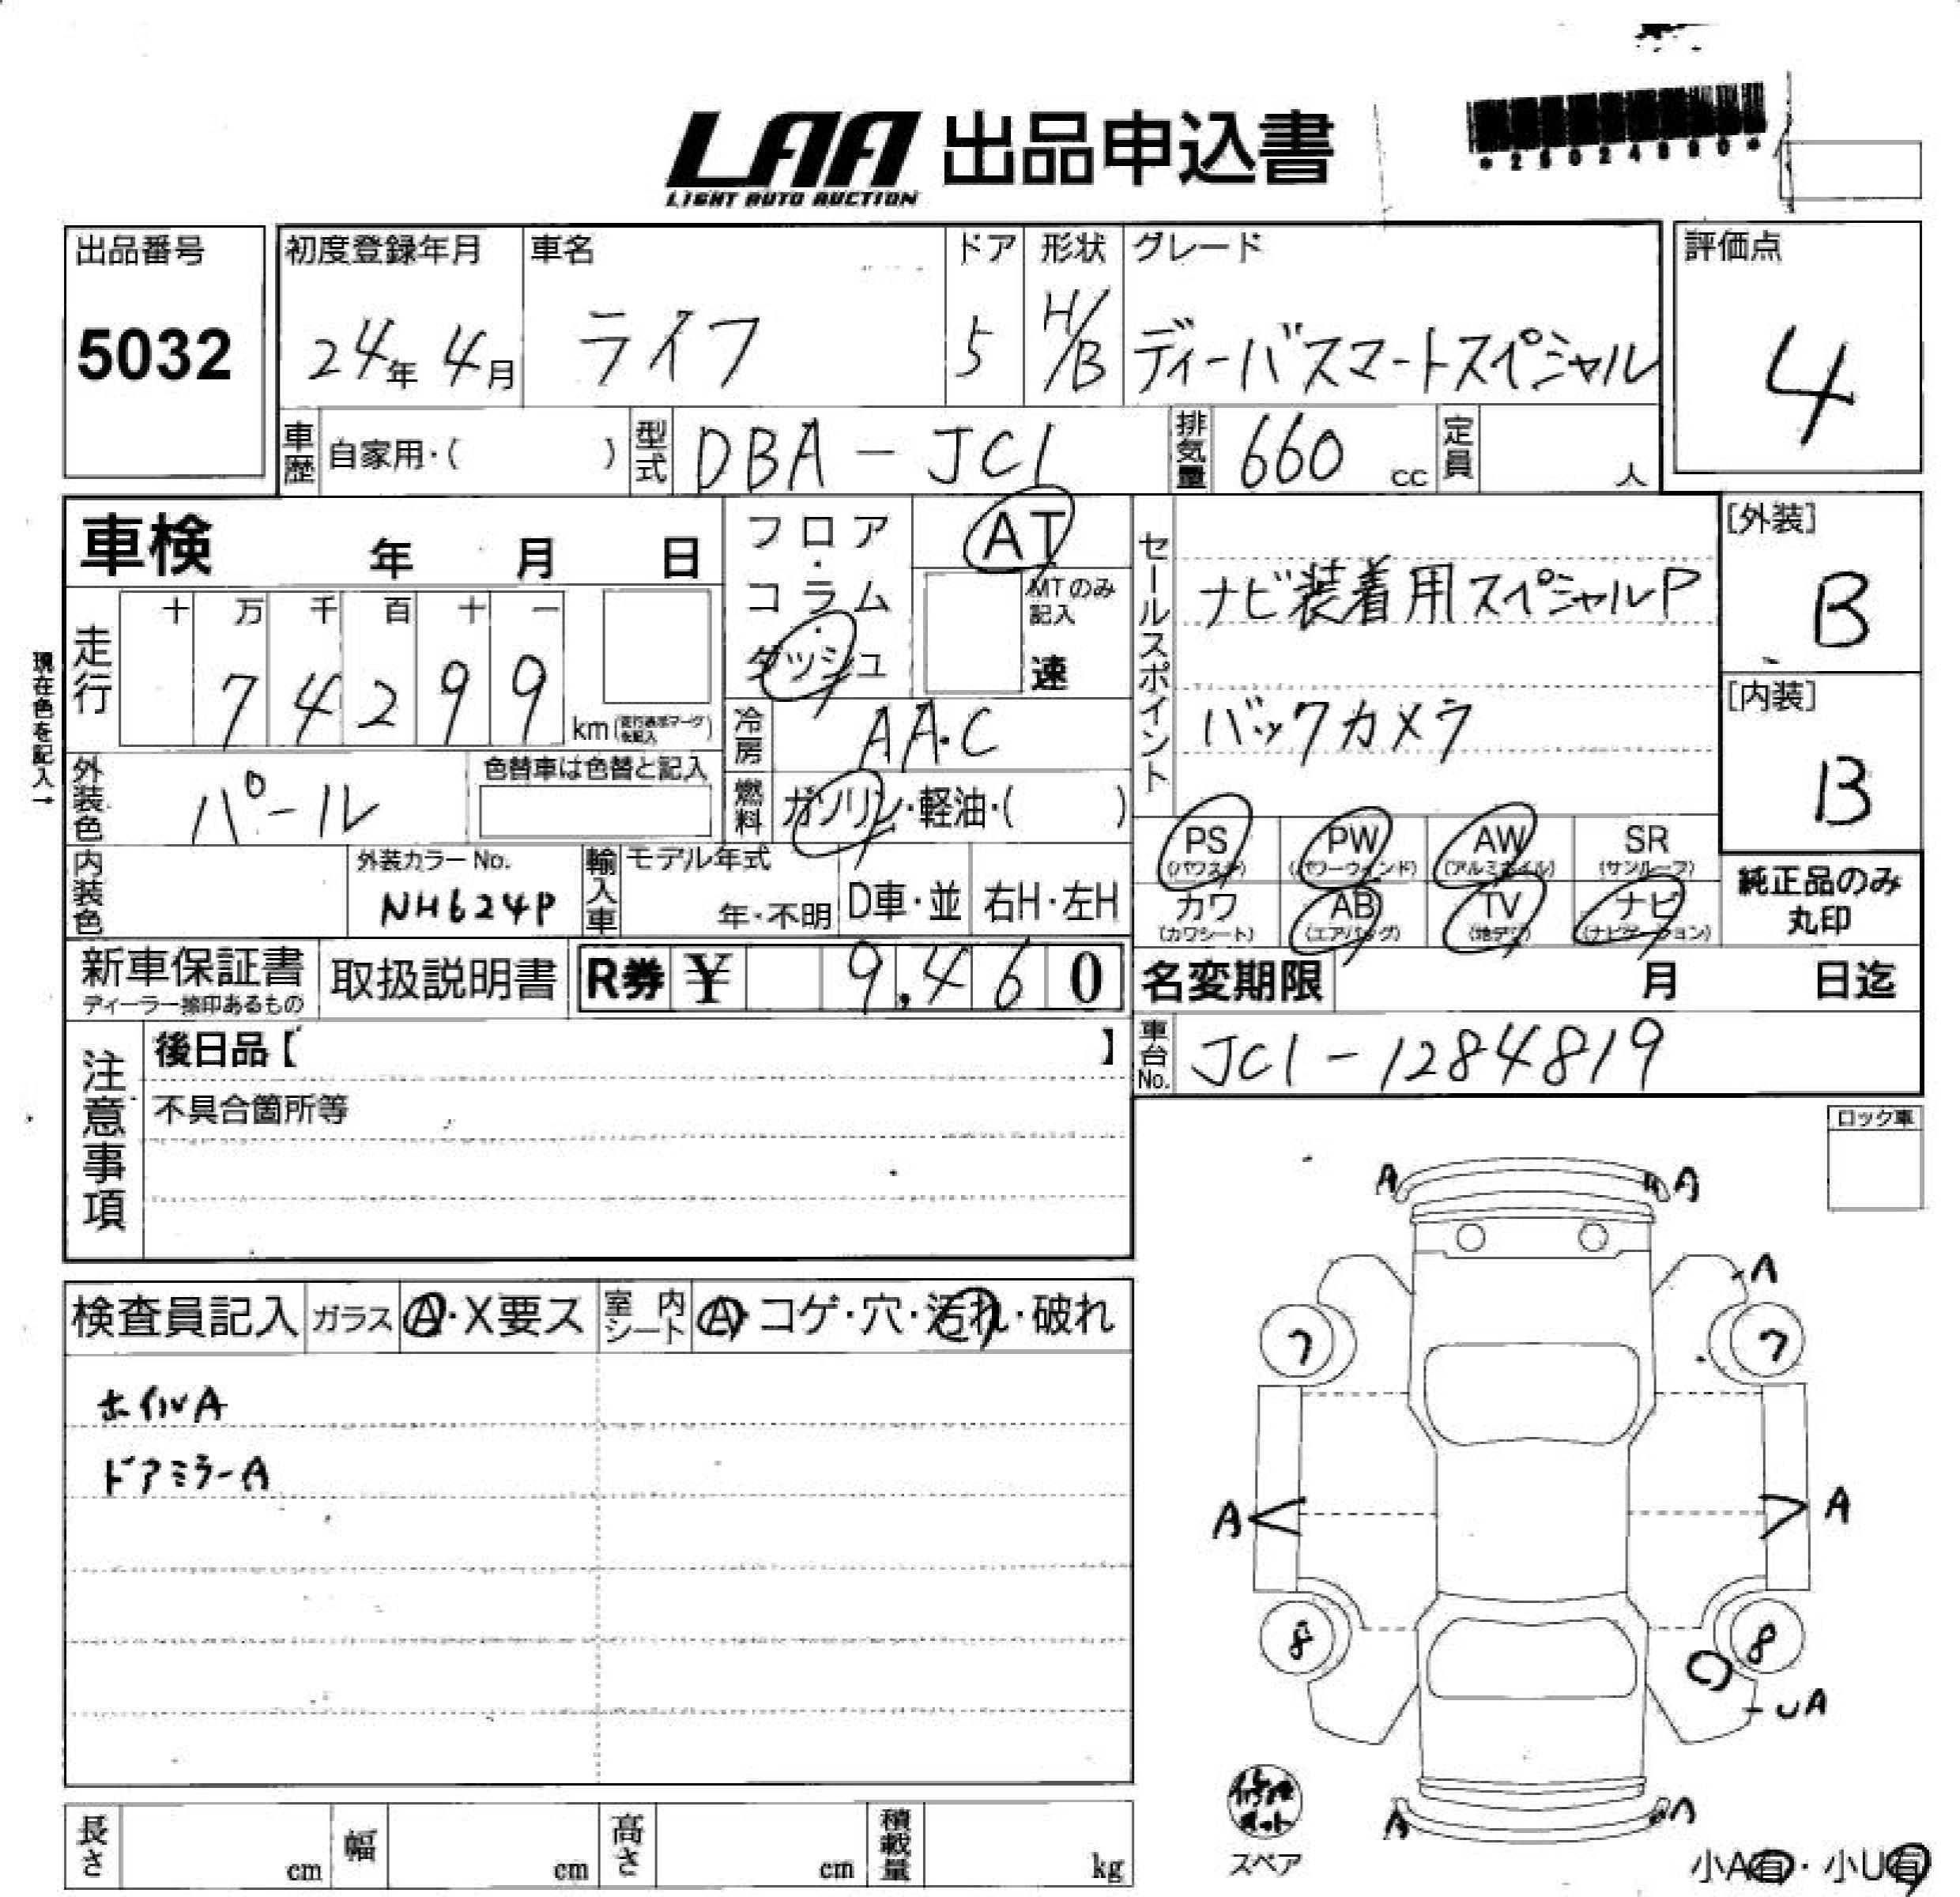 LAA 出品申込書
LIGHT AUTO AUCTION
出品番号
5032
初度登録年月
24年 4月
車名
ライフ
ドア
5
形状
H/B
グレード
ディーバスマートスペシャル
評価点
4
車歴 自家用・( )
型式 DBA-JC1
排気量 660 cc
定員 人
車検 年 月 日
走行
十 万 千 百 十 一
7 4 2 9 9 km
現在色を記入→
フロア・コラム・ダッシュ
AT
MTのみ記入
速
冷房 AA.C
燃料 ガソリン・軽油・( )
セールスポイント
ナビ装着用スペシャルP
バックカメラ
[外装]
B
[内装]
B
外装色 パール
色替車は色替と記入
内装色
外装カラーNo.
NH624P
輸入車
モデル年式
年・不明
D車・並
右H・左H
PS (パワステ)
PW (パワーウインド)
AW (アルミホイル)
SR (サンルーフ)
カワ (カワシート)
AB (エアバッグ)
TV (地デジ)
ナビ (ナビゲーション)
純正品のみ
丸印
新車保証書
ディーラー捺印あるもの
取扱説明書
R券 ¥ 9,460
名変期限 月 日迄
車台No. JC1-1284819
注意事項
後日品【 】
不具合箇所等
ロック車
検査員記入
ガラス A・X要ス
室内シート A・コゲ・穴・汚れ・破れ
ホイルA
ドアミラーA
A A
A
7 7
A A
8 8
UA
A A
修理キット
スペア
小A有・小U有
長さ cm
幅 cm
高さ cm
積載量 kg